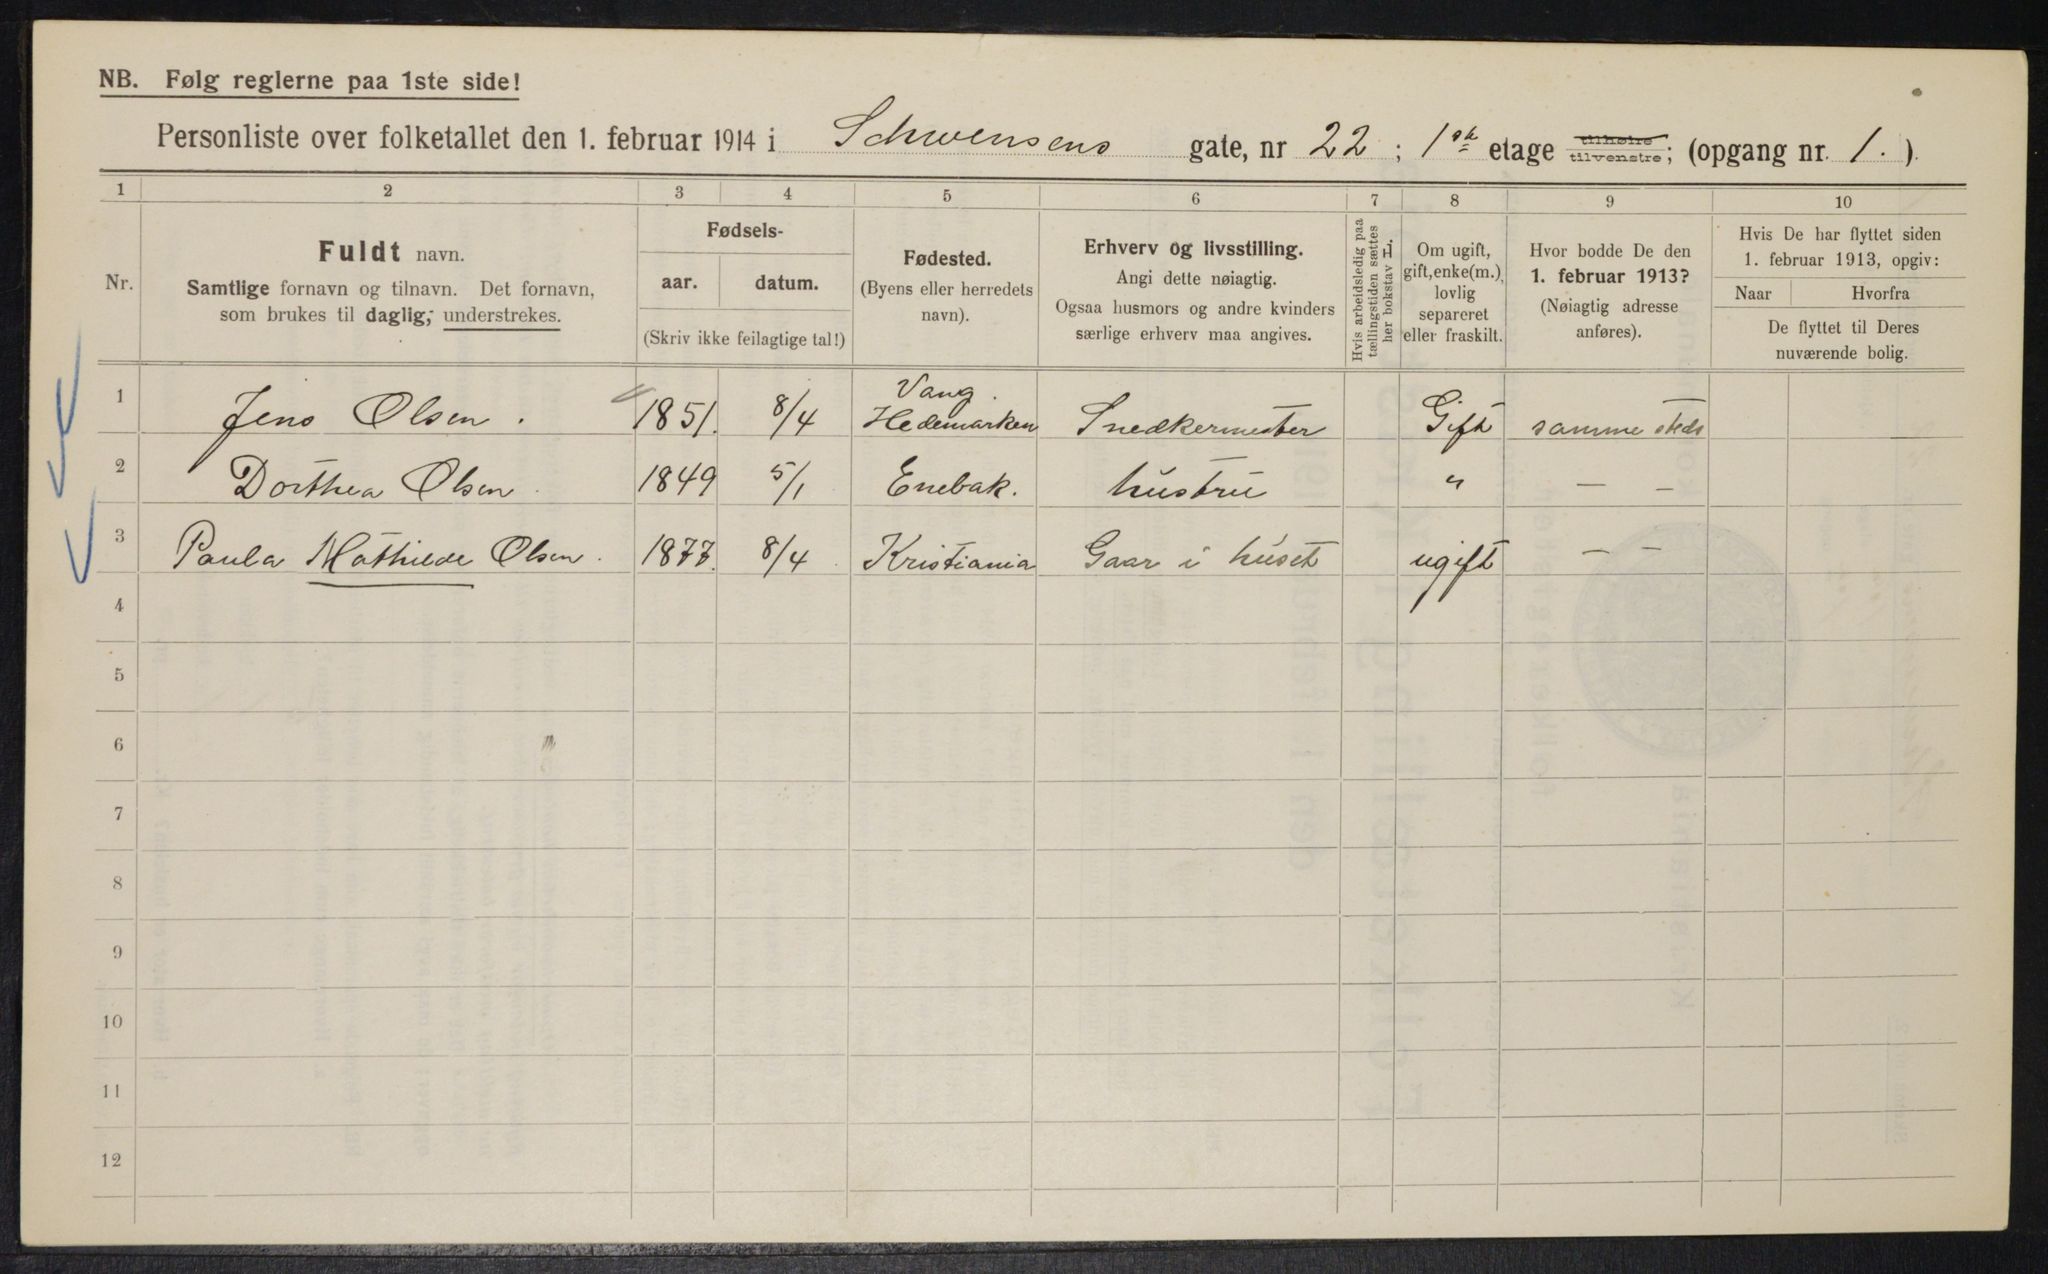 NB. Følg reglerne paa 1ste side!
Personliste over folketallet den 1. februar 1914 i Schwensens gate, nr 22; 1ste etage tilhøire tilvenstre; (opgang nr. 1.)
1 2 3 4 5 6 7 8 9 10
Nr.
Fuldt navn.
Samtlige fornavn og tilnavn. Det fornavn,
som brukes til daglig, understrekes.
Fødsels-
aar. datum.
(Skriv ikke feilagtige tal!)
Fødested.
(Byens eller herredets
navn).
Erhverv og livsstilling.
Angi dette nøiagtig.
Ogsaa husmors og andre kvinders
særlige erhverv maa angives.
Hvis arbeidsledig paa
tællingstiden sættes
her bokstav L.
Om ugift,
gift, enke(m.),
lovlig
separeret
eller fraskilt.
Hvor bodde De den
1. februar 1913?
(Nøiagtig adresse
anføres).
Hvis De har flyttet siden
1. februar 1913, opgiv:
Naar Hvorfra
De flyttet til Deres
nuværende bolig.
1 Jens Olsen. 1851. 8/4 Vang. Hedemarken Snedkermester Gift samme steds
2 Dorthea Olsen. 1849 5/1 Enebak. hustru " — —
3 Paula Mathilde Olsen. 1877. 8/4 Kristiania Gaar i huset ugift — —
4
5
6
7
8
9
10
11
12